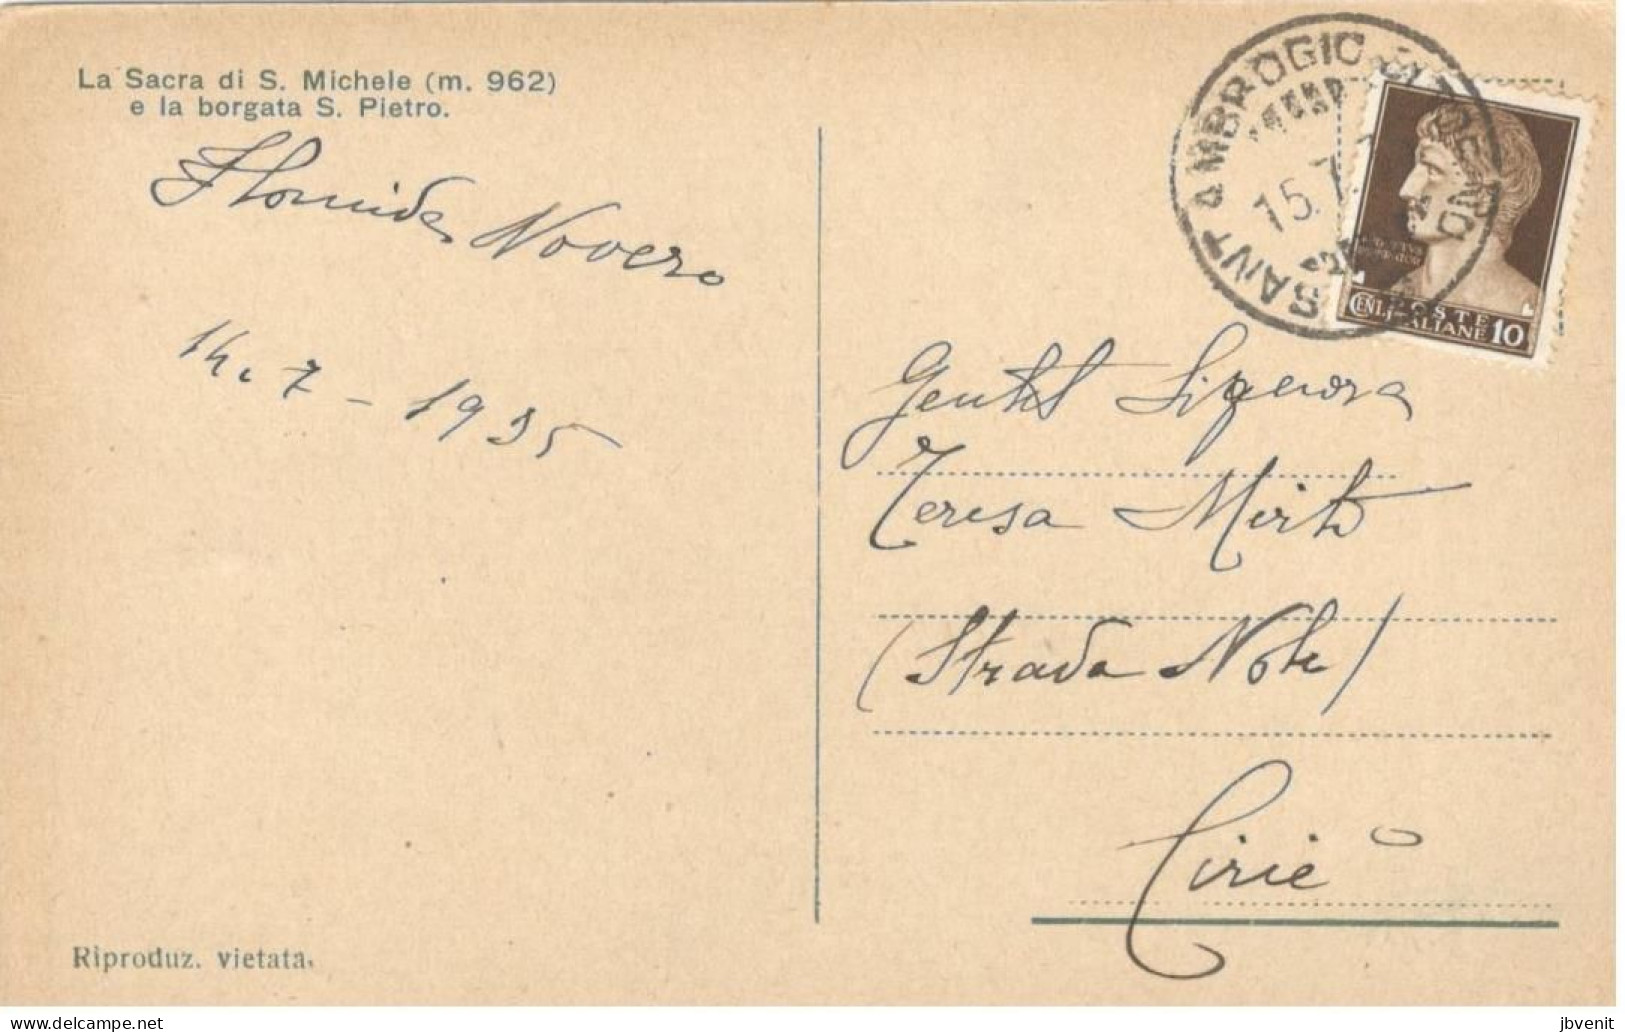 La Sacra di S. Michele (m. 962)
e la borgata S. Pietro.
Novero
14. 7 - 1935
SANT AMBROGIO DI TORINO
15.7
POSTE
ITALIANE
CENT. 10
Gentil Signora
Teresa
(Strada Nole)
Ciriè
Riproduz. vietata.
delcampe.net
jbvenit